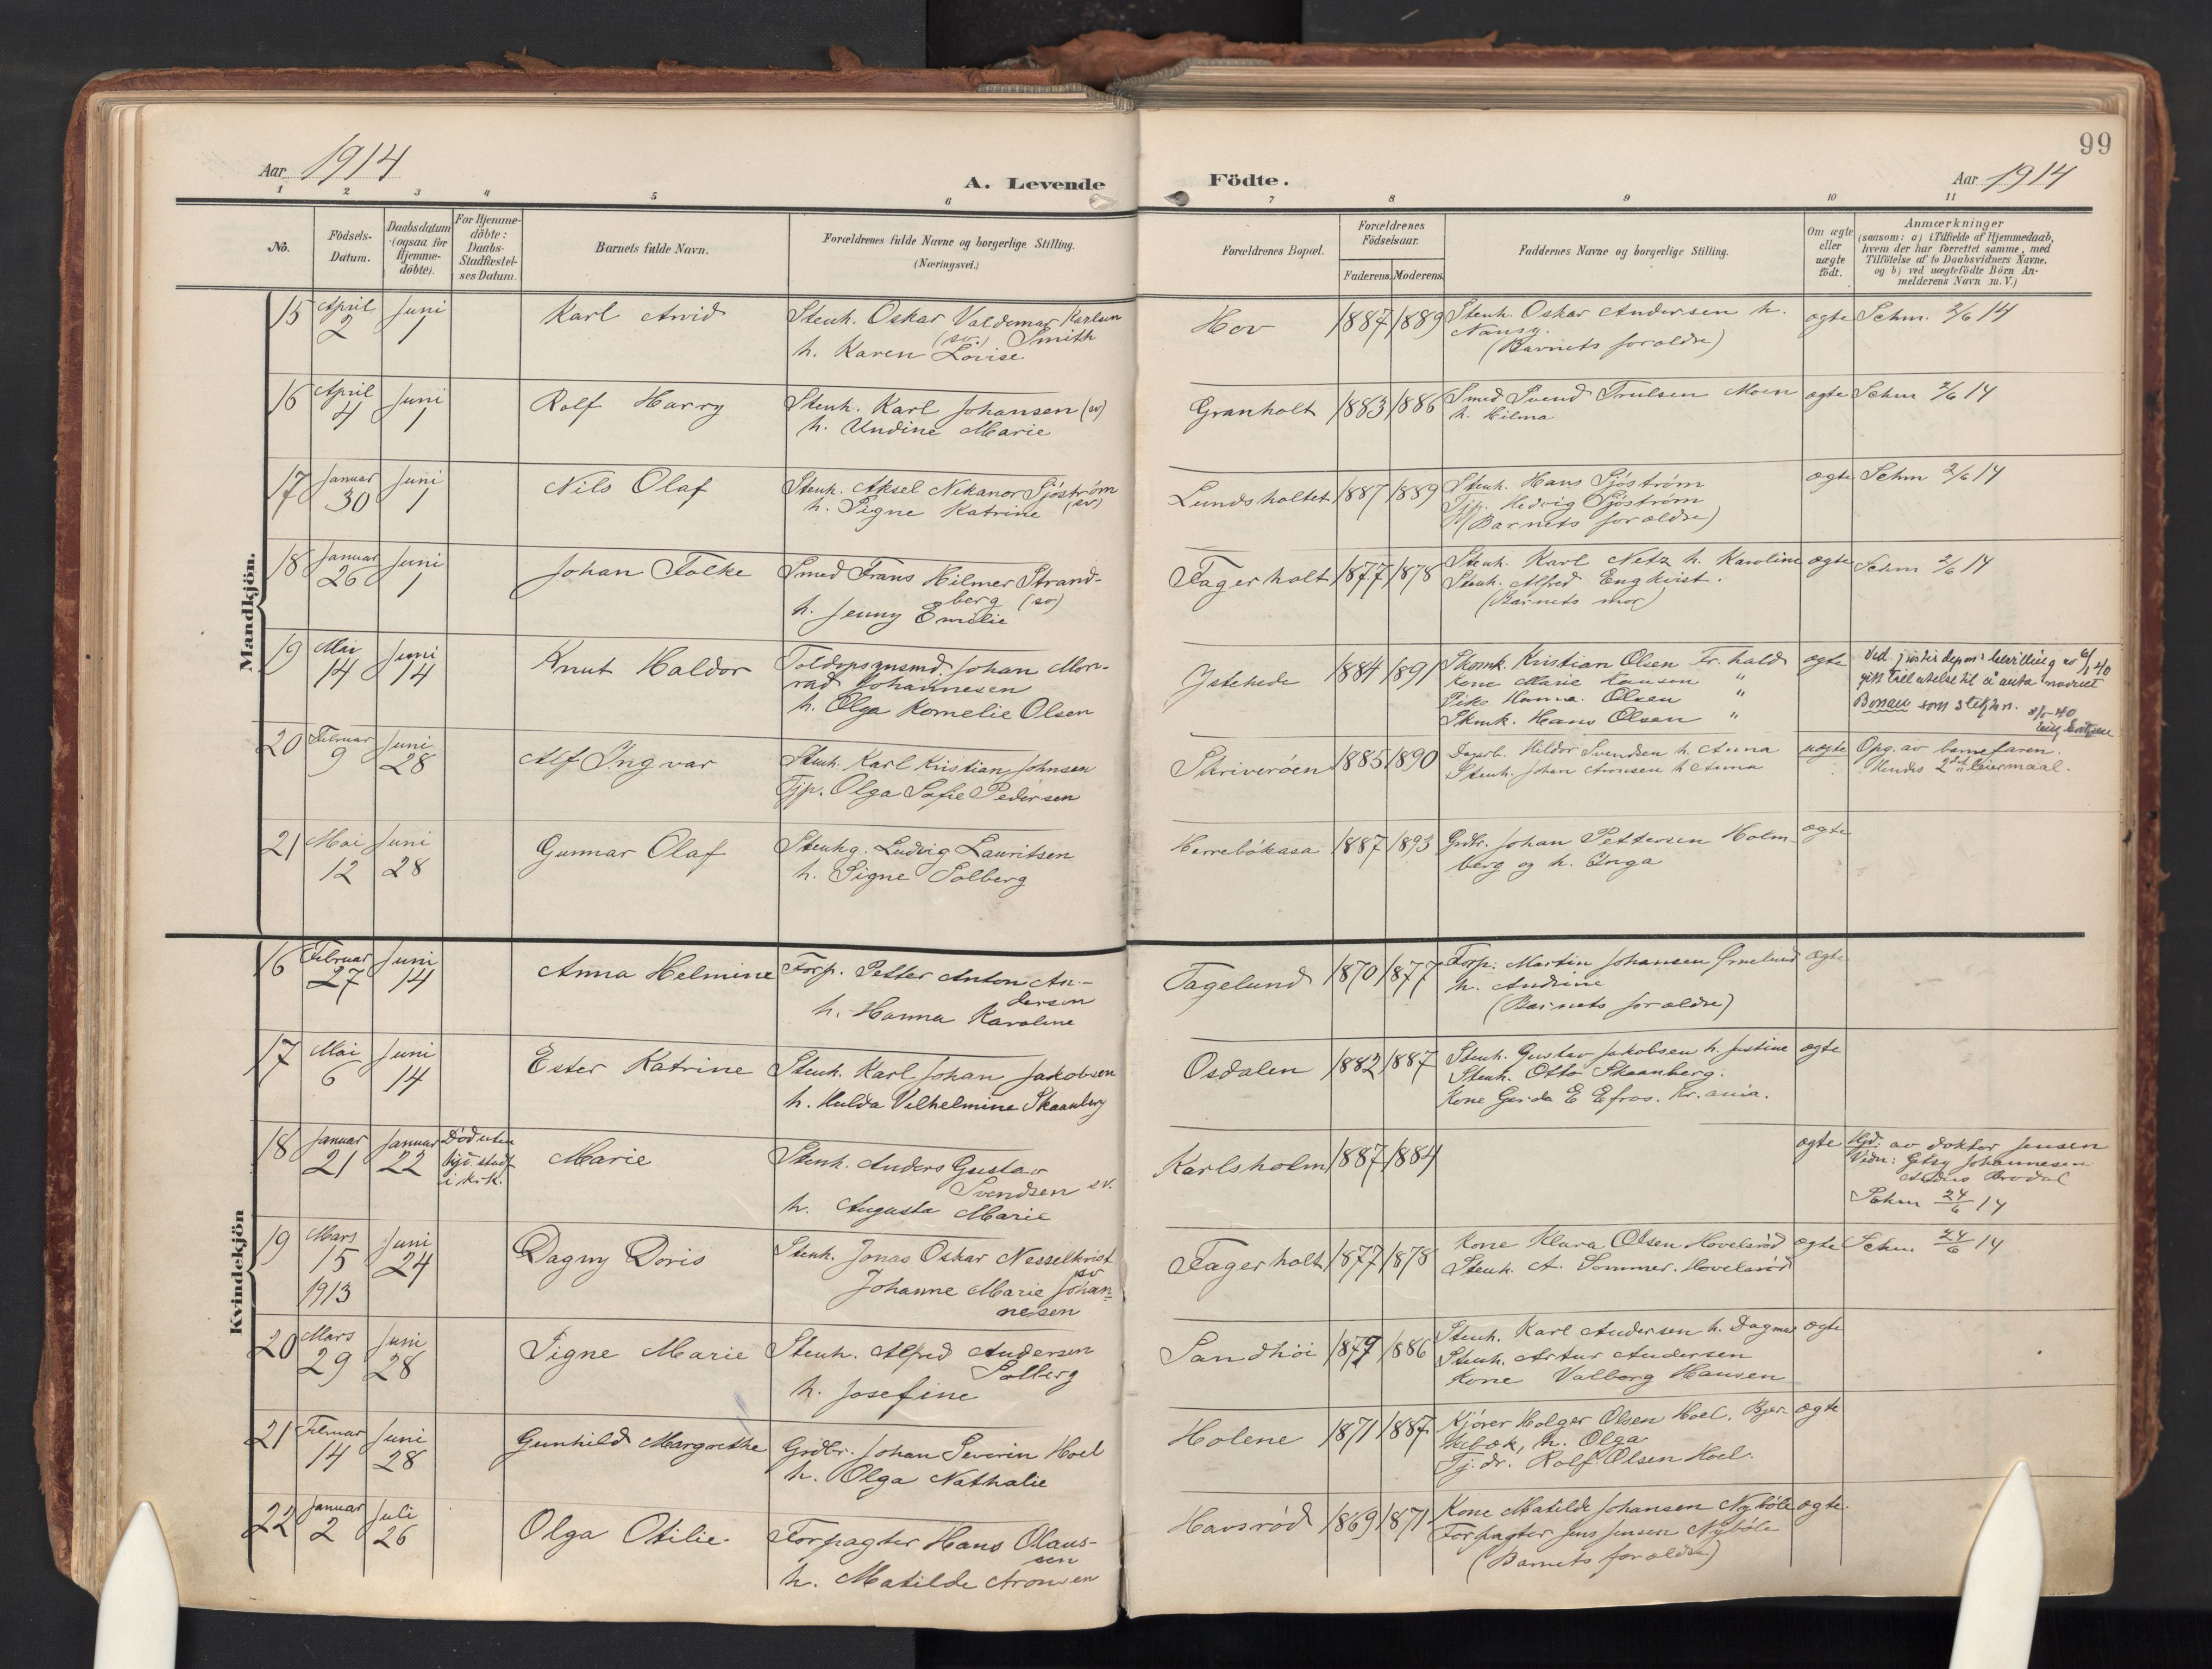 99
Aar 1914
A. Levende Födte.
Aar 1914
1 2 3 4 5 6 7 8 9 10 11
No.
Födsels-
Datum.
Daabsdatum
(ogsaa for
Hjemme-
döbte).
For Hjemme-
döbte:
Daabs-
Stadfæstel-
ses Datum.
Barnets fulde Navn.
Forældrenes fulde Navne og borgerlige Stilling.
(Næringsvei.)
Forældrenes Bopæl.
Forældrenes
Födselsaar.
Faderens. Moderens.
Faddernes Navne og borgerlige Stilling.
Om ægte
eller
uægte
födt.
Anmærkninger
(saasom: a) i Tilfælde af Hjemmedaab,
hvem der har forrettet samme, med
Tilföielse af to Daabsvidners Navne,
og b) ved uægtefödte Börn An-
melderens Navn m. V.)
Mandkjön.
15 April 2 Juni 1
Karl Arvid
Stenh. Oskar Valdemar Karlsen
(sv.) Smith
h. Karen Lovise
Hov 1887 1889
Stenh. Oskar Andersen h.
Nansy.
(Barnets forældre)
ægte Schm. 2/6 14
16 April 4 Juni 1
Rolf Harry
Stenh. Karl Johansen (sv)
h. Undine Marie
Granholt 1883 1886
Smed Svend Trulsen Moen
h. Hilma
ægte Schm 2/6 14
17 Januar 30 Juni 1
Nils Olaf
Stenh. Aksel Nikanor Sjöström
h. Signe Katrine (sv)
Lundsholtet 1887 1889
Stenh. Hans Sjöström
Tjp. Hedvig Sjöström
(Barnets forældre)
ægte Schm 2/6 14
18 Januar 26 Juni 1
Johan Folke
Smed Frans Hilmer Strand-
berg (sv)
h. Jenny Emilie
Fagerholt 1877 1878
Stenh. Karl Netz h. Karoline
Stenh. Alfred Engkvist.
(Barnets mor)
ægte Schm 2/6 14
19 Mai 14 Juni 14
Knut Haldor
Toldopsynsmd. Johan Mon-
rad Johannesen
h. Olga Kornelie Olsen
Istehede 1884 1891
Skomk. Kristian Olsen Fr.hald
Kone Marie Hansen "
Pike Hanna Olsen "
Skmk. Hans Olsen "
ægte
Ved justisdepos bevilling av 40
gitt tillatelse til å anta navnet
som slektsn.
20 Februar 9 Juni 28
Alf Ingvar
Stenh. Karl Kristian Johnsen
Tjp. Olga Sofie Pedersen
Skriveröen 1885 1890
Dagarb. Hildor Svendsen h. Anna
Stenh. Johan Aronsen h. Anna
uægte
Opg. av barnefaren.
Hendes 2det leiermaal.
21 Mai 12 Juni 28
Gunnar Olaf
Stenhg. Ludvig Lauritsen
h. Signe Solberg
Herrebökasa 1887 1893
Grdbr. Johan Pettersen Holm-
berg og h. Inga
ægte
Kvindekjön
16 Februar 27 Juni 14
Anna Helmine
Forp. Petter Anton An-
dersen
h. Hanna Karoline
Fagelund 1870 1877
Forp. Martin Johansen
h. Andrine
(Barnets forældre)
ægte
17 Mai 6 Juni 14
Ester Katrine
Stenh. Karl Johan Jakobsen
h. Hulda Vilhelmine Skaanberg
Osdalen 1882 1887
Stenh. Gustav Jakobsen h. Justine
Stenh. Otto Skaanberg.
Kone Gerda E Efros. Kr.ania.
ægte
18 Januar 21 Januar 22
Död uten
hjd. stadf
i kirk.
Marie
Stenh. Anders Gustav
Svendsen sv.
h. Augusta Marie
Karlsholm 1887 1884
ægte
Hjd. av doktor Jensen
Vidn: Johannesen
Brodal
Schm 24/6 14
19 Mars 15 1913 Juni 24
Dagny Doris
Stenh. Jonas Oskar Nesselkvist
sv
Johanne Marie Johan-
nesen
Fagerholt 1877 1878
Kone Klara Olsen Hovelsröd
Stenh. A. Sommer. Hovelsröd
ægte Schm. 24/6 14
20 Mars 29 Juni 28
Signe Marie
Stenh. Alfred Andersen
Solberg
h. Josefine
Sandhöi 1879 1886
Stenh. Karl Andersen h. Dagmar
Stenh. Artur Andersen
Kone Valborg Hansen
ægte
21 Februar 14 Juni 28
Gunhild Margrethe
Grdbr. Johan Severin Hoel
h. Olga Nathalie
Holene 1871 1887
Kjörer Holger Olsen Hoel. Bjer-
kebæk, h. Olga
Tj.dr. Rolf Olsen Hoel.
ægte
22 Januar 2 Juli 26
Olga Otilie.
Forpagter Hans Olaus-
sen
h. Matilde Aronsen
Havsröd 1869 1871
Kone Matilde Johansen Nyböle
Forpagter Jens Jensen Nyböle
(Barnets forældre)
ægte.